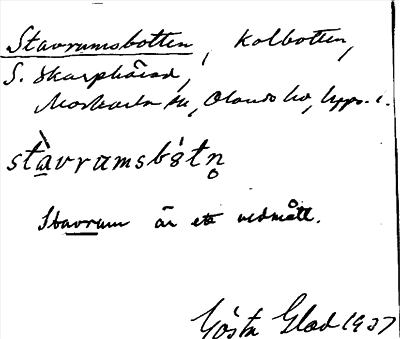 Stavramsbotten, Kolbotten,
S. Skarphärad,
Olands hd, Upps. l.
stàvramsbótn̥
Stavram är ett vedmått.
Gösta Glad 1937